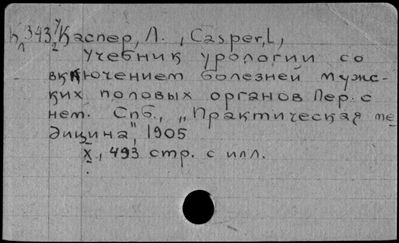 К 343 7/2 Каспер, Л. , Casper, L,
Учебник урологии со
включением болезней мужс-
ких половых органов Пер. с
нем. Спб., „Практическая ме
дицина", 1905
X, 493 стр. с илл.